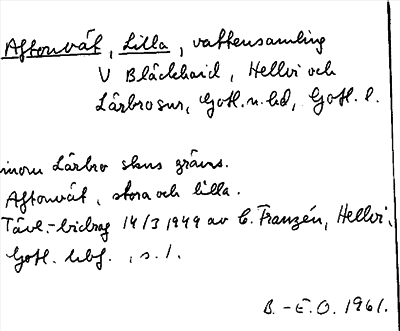 Aftonvät, Lilla, vattensamling
V Bläckhaid, Hellvi och
Lärbro snr, Gotl.n.hd, Gotl. l.
inom Lärbro skns gräns.
Aftonvät, stora och lilla.
Tävl.-bidrag 14/3 1949 av C. Franzén, Hellvi,
Gotl. hbf., s. 1.
B.-E.O. 1961.